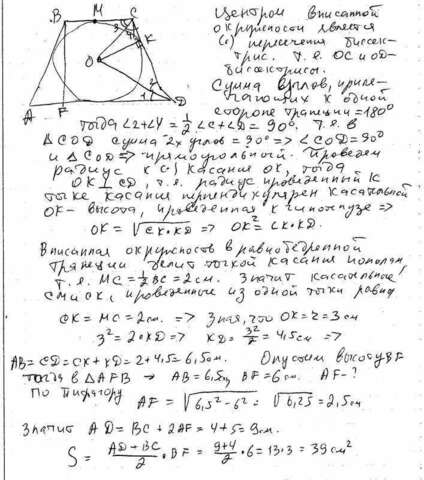 B M C K O A F D
1 2 3 4
Центром вписанной
окружности является
(·) пересечения биссек-
трис. Т.е. OC и OD-
биссектрисы.
Сумма углов, приле-
гающих к одной
стороне трапеции = 180°
Тогда ∠2+∠4 = 1/2 ∠C+∠D = 90°. Т.е. в
△COD сумма 2х углов = 90° => ∠COD = 90°
и △COD => прямоугольный. Проведем
радиус к (·) касания OK, тогда
OK ⊥ CD, т.е. радиус проведенный к
точке касания перпендикулярен касательной
OK - высота, проведенная к гипотенузе =>
OK = √CK·KD => OK² = CK·KD.
Вписанная окружность в равнобедренной
трапеции делит точкой касания пополам
т.е. MC = 1/2 BC = 2см. Значит касательные
CM и CK, проведенные из одной точки равны
CK = MC = 2см. => Зная, что OK = r = 3см
3² = 2·KD => KD = 3²/2 = 4,5см =>
AB = CD = CK+KD = 2+4,5 = 6,5см. Опустим высоту BF
тогда в △AFB → AB = 6,5см BF = 6см. AF-?
По Пифагору AF = √6,5²-6² = √6,25 = 2,5см
Значит AD = BC + 2AF = 4+5 = 9см.
S = AD+BC/2 · BF = 9+4/2 · 6 = 13·3 = 39см²